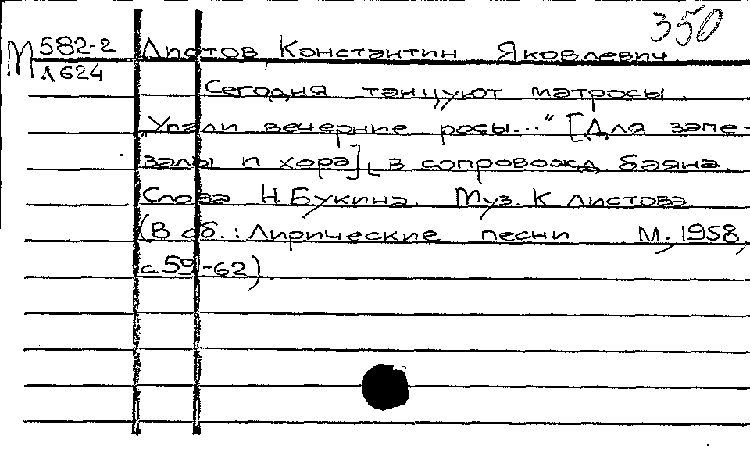 350
М 582-2
Л624
Листов Константин Яковлевич
Сегодня танцуют матросы.
„Упали вечерние росы..." [Для запе-
залы и хора] в сопровожд. баяна.
Слова Н. Букина. Муз. К Листова
(В сб.: Лирические песни М., 1958,
с 59-62)